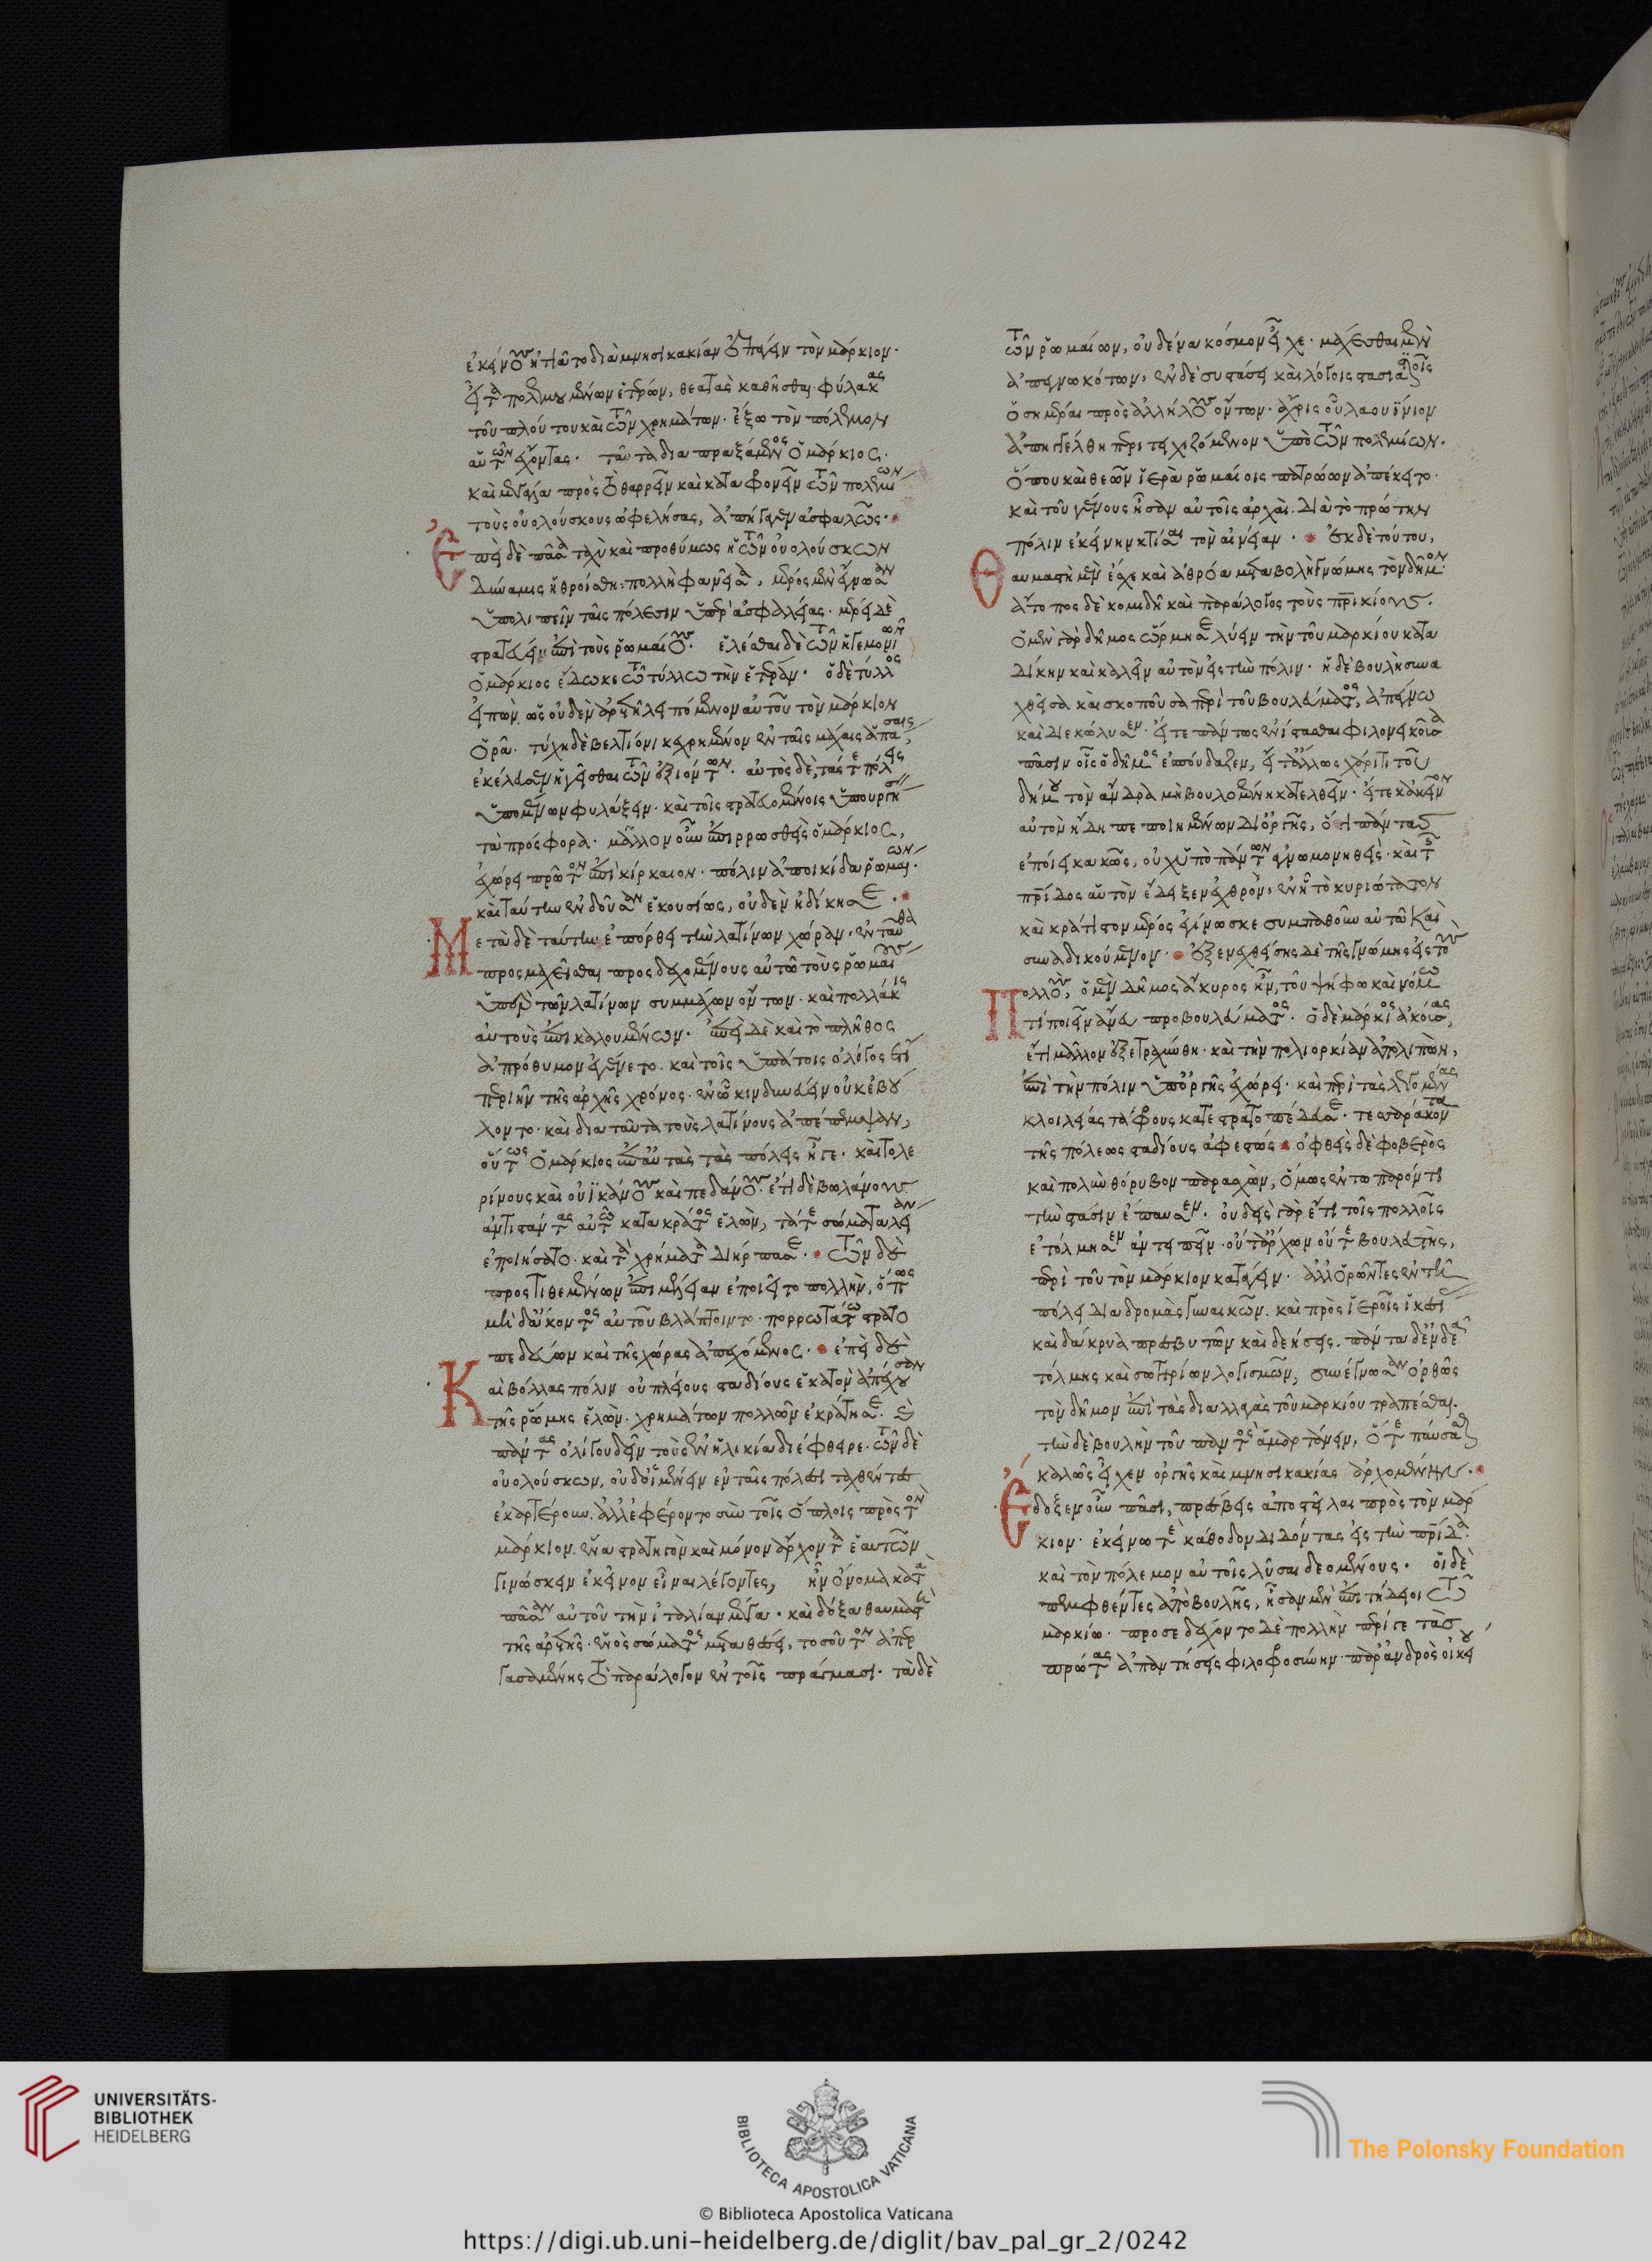 ἐκείνους ᾐτιᾶτο διὰ μνησικακίαν ἐπάγειν τὸν μάρκιον.
οἱ δὲ πολεμουμένων ἑτέρων, θεαταὶ καθῆσθαι φύλακας
τοῦ πλούτου καὶ τῶν χρημάτων. ἔξω τὸν πόλεμον
αὐτῶν ἔχοντας. ταῦτα διαπραξάμενος ὁ μάρκιος.
καὶ μεγάλα πρὸς τὸ θαρρεῖν καὶ καταφρονεῖν τῶν πολεμίων
τοὺς οὐολούσκους ὠφελήσας, ἀπήγαγεν ἀσφαλῶς.
Ἐπεὶ δὲ πᾶσα ταχὺ καὶ προθύμως ἡ τῶν οὐολούσκων
δύναμις ἠθροίσθη. πολλὴ φανεῖσα, μέρος μὲν ἔγνωσαν
ὑπολιπεῖν ταῖς πόλεσιν ὑπὲρ ἀσφαλείας. μέρει δὲ
στρατεύειν ἐπὶ τοὺς ῥωμαίους. ἑλέσθαι δὲ τῶν ἡγεμονιῶν
ὁ μάρκιος ἔδωκε τῶ τύλλω τὴν ἑτέραν. ὁ δὲ τύλλος
εἰπὼν ὡς οὐδὲν ἀρετῆ λειπόμενον αὑτοῦ τὸν μάρκιον
ὁρᾶ. τύχη δὲ βελτίονι κεχρημένον ἐν ταῖς μάχαις ἁπάσαις,
ἐκέλευσεν ἡγεῖσθαι τῶν ἐξιόντων. αὐτὸς δὲ, τάς τε πόλεις
ὑπομένων φυλάξειν. καὶ τοῖς στρατευομένοις ὑπουργήσειν
τὰ πρόσφορα. μᾶλλον οὖν ἐπιρρωσθεὶς ὁ μάρκιος,
ἐχώρει πρῶτον ἐπὶ κίρκαιον. πόλιν ἀποικίδα ῥωμαίων.
καὶ ταύτην ἐνδοῦσαν ἑκουσίως, οὐδὲν ἠδίκησε.
Μετὰ δὲ ταύτην ἐπόρθει τὴν λατίνων χώραν. ἐνταῦθα
προσμαχεῖσθαι προσδεχομένους αὐτῶ τοὺς ῥωμαίους
ὑπὲρ τῶν λατίνων συμμάχων ὄντων. καὶ πολλάκις
αὐτοὺς ἐπικαλουμένων. ἐπεὶ δὲ καὶ τὸ πλῆθος
ἀπρόθυμον ἐγένετο. καὶ τοῖς ὑπάτοις ὀλίγος ἔτι
περιῆν τῆς ἀρχῆς χρόνος. ἐν ὧ κινδυνεύειν οὐκ ἐβού
λοντο. καὶ διὰ ταῦτα τοὺς λατίνους ἀπέπεμψαν,
οὕτως ὁ μάρκιος ἐπ' αὐτὰς τὰς πόλεις ἦγε. καὶ τολε
ρίνους καὶ οὐϊκάνους καὶ πεδάνους. ἔτι δὲ βωλάνους
ἀντιστάντας αὐτῶ κατακράτος ἑλὼν, τά τε σώματα λείαν
ἐποιήσατο. καὶ τὰ χρήματα διήρπασε. τῶν δὲ
προστιθεμένων ἐπιμέλειαν ἐποιεῖτο πολλὴν, ὅπως
μηδ' ἄκοντος αὐτοῦ βλάπτοιντο. πορρωτάτω στρατο
πεδεύων καὶ τῆς χώρας ἀπεχόμενος. ἐπεὶ δὲ
Καὶ βόλλας πόλιν οὐ πλείους σταδίους ἑκατὸν ἀπέχουσαν
τῆς ῥώμης ἑλὼν. χρημάτων πολλῶν ἐκράτησε. καὶ
πάντας ὀλίγου δεῖν τοὺς ἐν ἡλικία διέφθειρε. τῶν δὲ
οὐολούσκων, οὐδ' οἱ μένειν ἐν ταῖς πόλεσι ταχθέντες
ἐκαρτέρουν. ἀλλ' ἐφέροντο σὺν τοῖς ὅπλοις πρὸς τὸν
μάρκιον. ἕνα στρατηγὸν καὶ μόνον ἄρχοντα ἑαυτῶν
γινώσκειν ἐκεῖνον εἶναι λέγοντες, ἦν ὄνομα κατὰ
πᾶσαν αὐτοῦ τὴν ἰταλίαν μέγα. καὶ δόξα θαυμαστὴ
τῆς ἀρετῆς. ἑνὸς σώματος μεταθέσει, τοσοῦτον ἀπερ
γασαμένης τὸ παράλογον ἐν τοῖς πράγμασι. τὰ δὲ
τῶν ῥωμαίων, οὐδένα κόσμον εἶχε. μάχεσθαι μὲν
ἀπεγνωκότων, ἐν δὲ συστάσει καὶ λόγοις στασιαστικοῖς
ὁσημέραι πρὸς ἀλλήλους ὄντων. ἄχρις οὗ λαουΐνιον
ἀπηγγέλθη περιτειχιζόμενον ὑπὸ τῶν πολεμίων.
ὅπου καὶ θεῶν ἱερὰ ῥωμαίοις πατρώων ἀπέκειτο.
καὶ τοῦ γένους ἦσαν αὐτοῖς ἀρχαὶ. διὰ τὸ πρώτην
πόλιν ἐκείνην κτίσαι τὸν αἰνείαν. ἐκ δὲ τούτου,
Θαυμαστὴ μὲν ἔσχε καὶ ἀθρόα μεταβολὴ γνώμης τὸν δῆμον.
ἄτοπος δὲ κομιδῆ καὶ παράλογος τοὺς πατρικίους.
ὁ μὲν γὰρ δῆμος ὥρμησε λύειν τὴν τοῦ μαρκίου κατα
δίκην καὶ καλεῖν αὐτὸν εἰς τὴν πόλιν. ἡ δὲ βουλὴ συνα
χθεῖσα καὶ σκοποῦσα περὶ τοῦ βουλεύματος, ἀπέγνω
καὶ διεκώλυσεν. εἴτε πάντως ἐνίστασθαι φιλονεικοῦσα
πᾶσιν οἷς ὁ δῆμος ἐσπούδαζεν, εἴτ' ἄλλως χάριτι τοῦ
δήμου τὸν ἄνδρα μὴ βουλομένη κατελθεῖν. εἴτε κἀκεῖνον
αὐτὸν ἤδη πεποιημένων δι' ὀργῆς, ὅτι πάντας
ἐποίει κακῶς, οὐχ' ὑπὸ πάντων ἀγνωμονηθεὶς. καὶ τῆς
πατρίδος αὑτὸν ἔδειξεν ἐχθρὸν, ἐν ἧ τὸ κυριώτατον
καὶ κράτιστον μέρος ἐγίνωσκε συμπαθοῦν αὐτῶ καὶ
συναδικούμενον. ἐξενεχθείσης δὲ τῆς γνώμης εἰς τοὺς
Πολλοὺς, ὁ μὲν δῆμος ἄκυρος ἦν, τοῦ ψήφω καὶ νόμω
τι ποιεῖν ἄνευ προβουλεύματος. ὁ δὲ μάρκιος ἀκούσας,
ἔτι μᾶλλον ἐξετραχύνθη. καὶ τὴν πολιορκίαν ἀπολιπὼν,
ἐπὶ τὴν πόλιν ὑπ' ὀργῆς ἐχώρει. καὶ περὶ τὰς λεγομένας
κλοιλείας τάφρους κατεστρατοπέδευσε. τεσσαράκοντα
τῆς πόλεως σταδίους ἀφεστώς. ὀφθεὶς δὲ φοβερὸς
καὶ πολὺν θόρυβον παρασχὼν, ὅμως ἐν τῶ παρόντι
τὴν στάσιν ἔπαυσεν. οὐδεὶς γὰρ ἔτι τοῖς πολλοῖς
ἐτόλμησεν ἀντειπεῖν. οὔτ' ἄρχων οὔτε βουλευτὴς,
περὶ τοῦ τὸν μάρκιον κατάγειν. ἀλλ' ὁρῶντες ἐν τῆ
πόλει διαδρομὰς γυναικῶν. καὶ πρὸς ἱεροῖς ἱκεσί
καὶ δάκρυα πρεσβυτῶν καὶ δεήσεις. πάντα δ' ἐνδεᾶ
τόλμης καὶ σωτηρίων λογισμῶν, συνέγνωσαν ὀρθῶς
τὸν δῆμον ἐπὶ τὰς διαλλαγὰς τοῦ μαρκίου τραπέσθαι.
τὴν δὲ βουλὴν τοῦ παντὸς ἁμαρτάνειν, ὅτε παύσασθαι
καλῶς εἶχεν ὀργῆς καὶ μνησικακίας ἀρχομένην.
Ἔδοξεν οὖν πᾶσι, πρέσβεις ἀποστεῖλαι πρὸς τὸν μάρ
κιον. ἐκείνω τε κάθοδον διδόντας εἰς τὴν πατρίδα.
καὶ τὸν πόλεμον αὐτοῖς λῦσαι δεομένους. οἱ δὲ
πεμφθέντες ἀπὸ βουλῆς, ἦσαν μὲν ἐπιτήδειοι τῶ
μαρκίω. προσεδέχοντο δὲ πολλὴν περί γε τὰς
πρώτας ἀπαντήσεις φιλοφροσύνην παρ' ἀνδρὸς οἰκείου
UNIVERSITÄTS-
BIBLIOTHEK
HEIDELBERG
BIBLIOTECA APOSTOLICA VATICANA
The Polonsky Foundation
© Biblioteca Apostolica Vaticana
https://digi.ub.uni-heidelberg.de/diglit/bav_pal_gr_2/0242